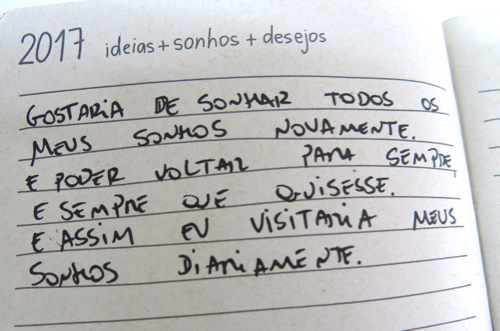 2017 ideias + sonhos + desejos
GOSTARIA DE SONHAR TODOS OS
MEUS SONHOS NOVAMENTE.
E PODER VOLTAR PARA SEMPRE,
E SEMPRE QUE QUISESSE.
E ASSIM EU VISITARIA MEUS
SONHOS DIARIAMENTE.